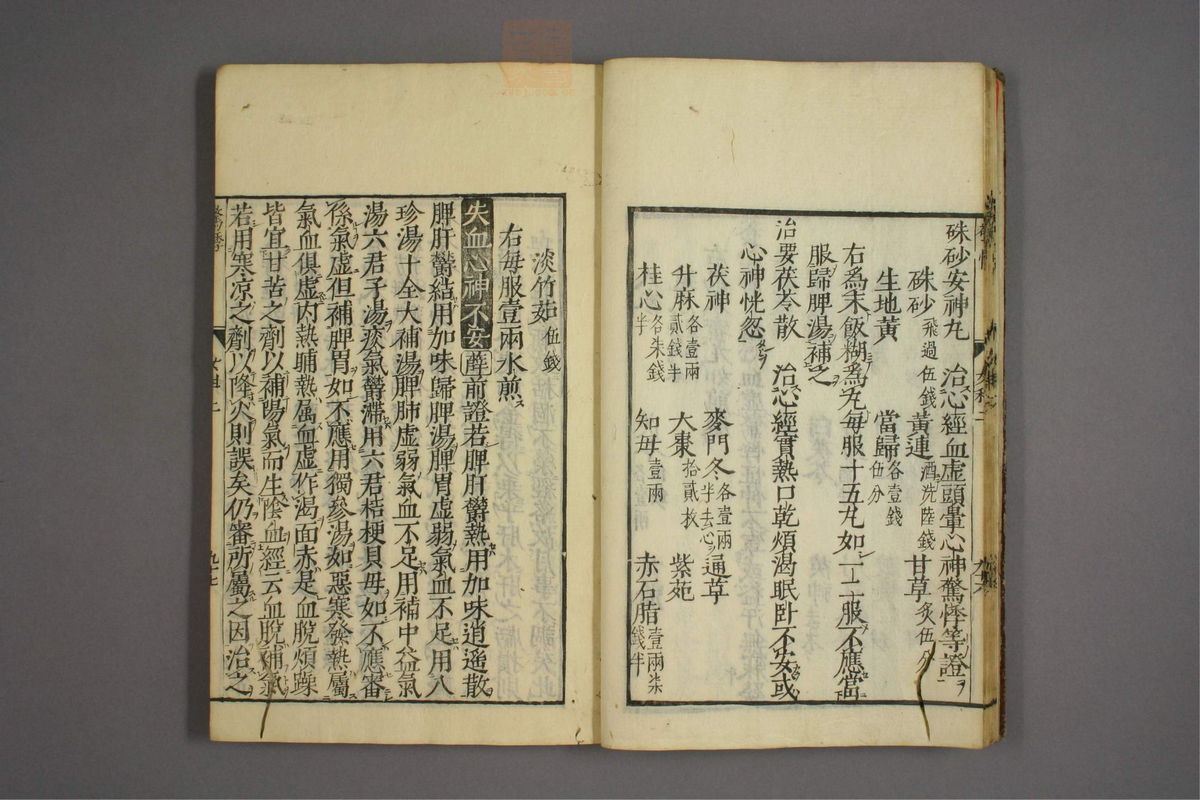 硃砂安神丸　治心經血虚頭暈心神驚悸等證
硃砂飛過伍錢　黄連酒洗陸錢　甘草炙伍分
生地黄　當歸各壹錢伍分
右爲末飯糊爲丸毎服十五丸如一二服不應當
服歸脾湯補之
治要茯苓散　治心經實熱口乾煩渴眠卧不安或
心神恍忽
茯神　麥門冬各壹兩半去心　通草
升麻各壹兩貳錢半　大棗拾貳枚　紫菀
桂心各柒錢半　知毋壹兩　赤石脂壹兩柒錢半
淡竹茹伍錢
右毎服壹兩水煎
失血心神不安　薛前證若脾肝鬱熱用加味逍遥散
脾肝鬱結用加味歸脾湯脾胃虚弱氣血不足用八
珍湯十全大補湯脾肺虚弱氣血不足用補中益氣
湯六君子湯痰氣鬱滯用六君桔梗貝毋如不應審
係氣虚但補脾胃如不應用獨參湯如惡寒發熱屬
氣血俱虚内熱晡熱属血虚作渴面赤是血脱煩躁
皆宜甘苦之劑以補陽氣而生陰血經云血脱補氣
若用寒凉之劑以降火則誤矣仍審所屬之因治之